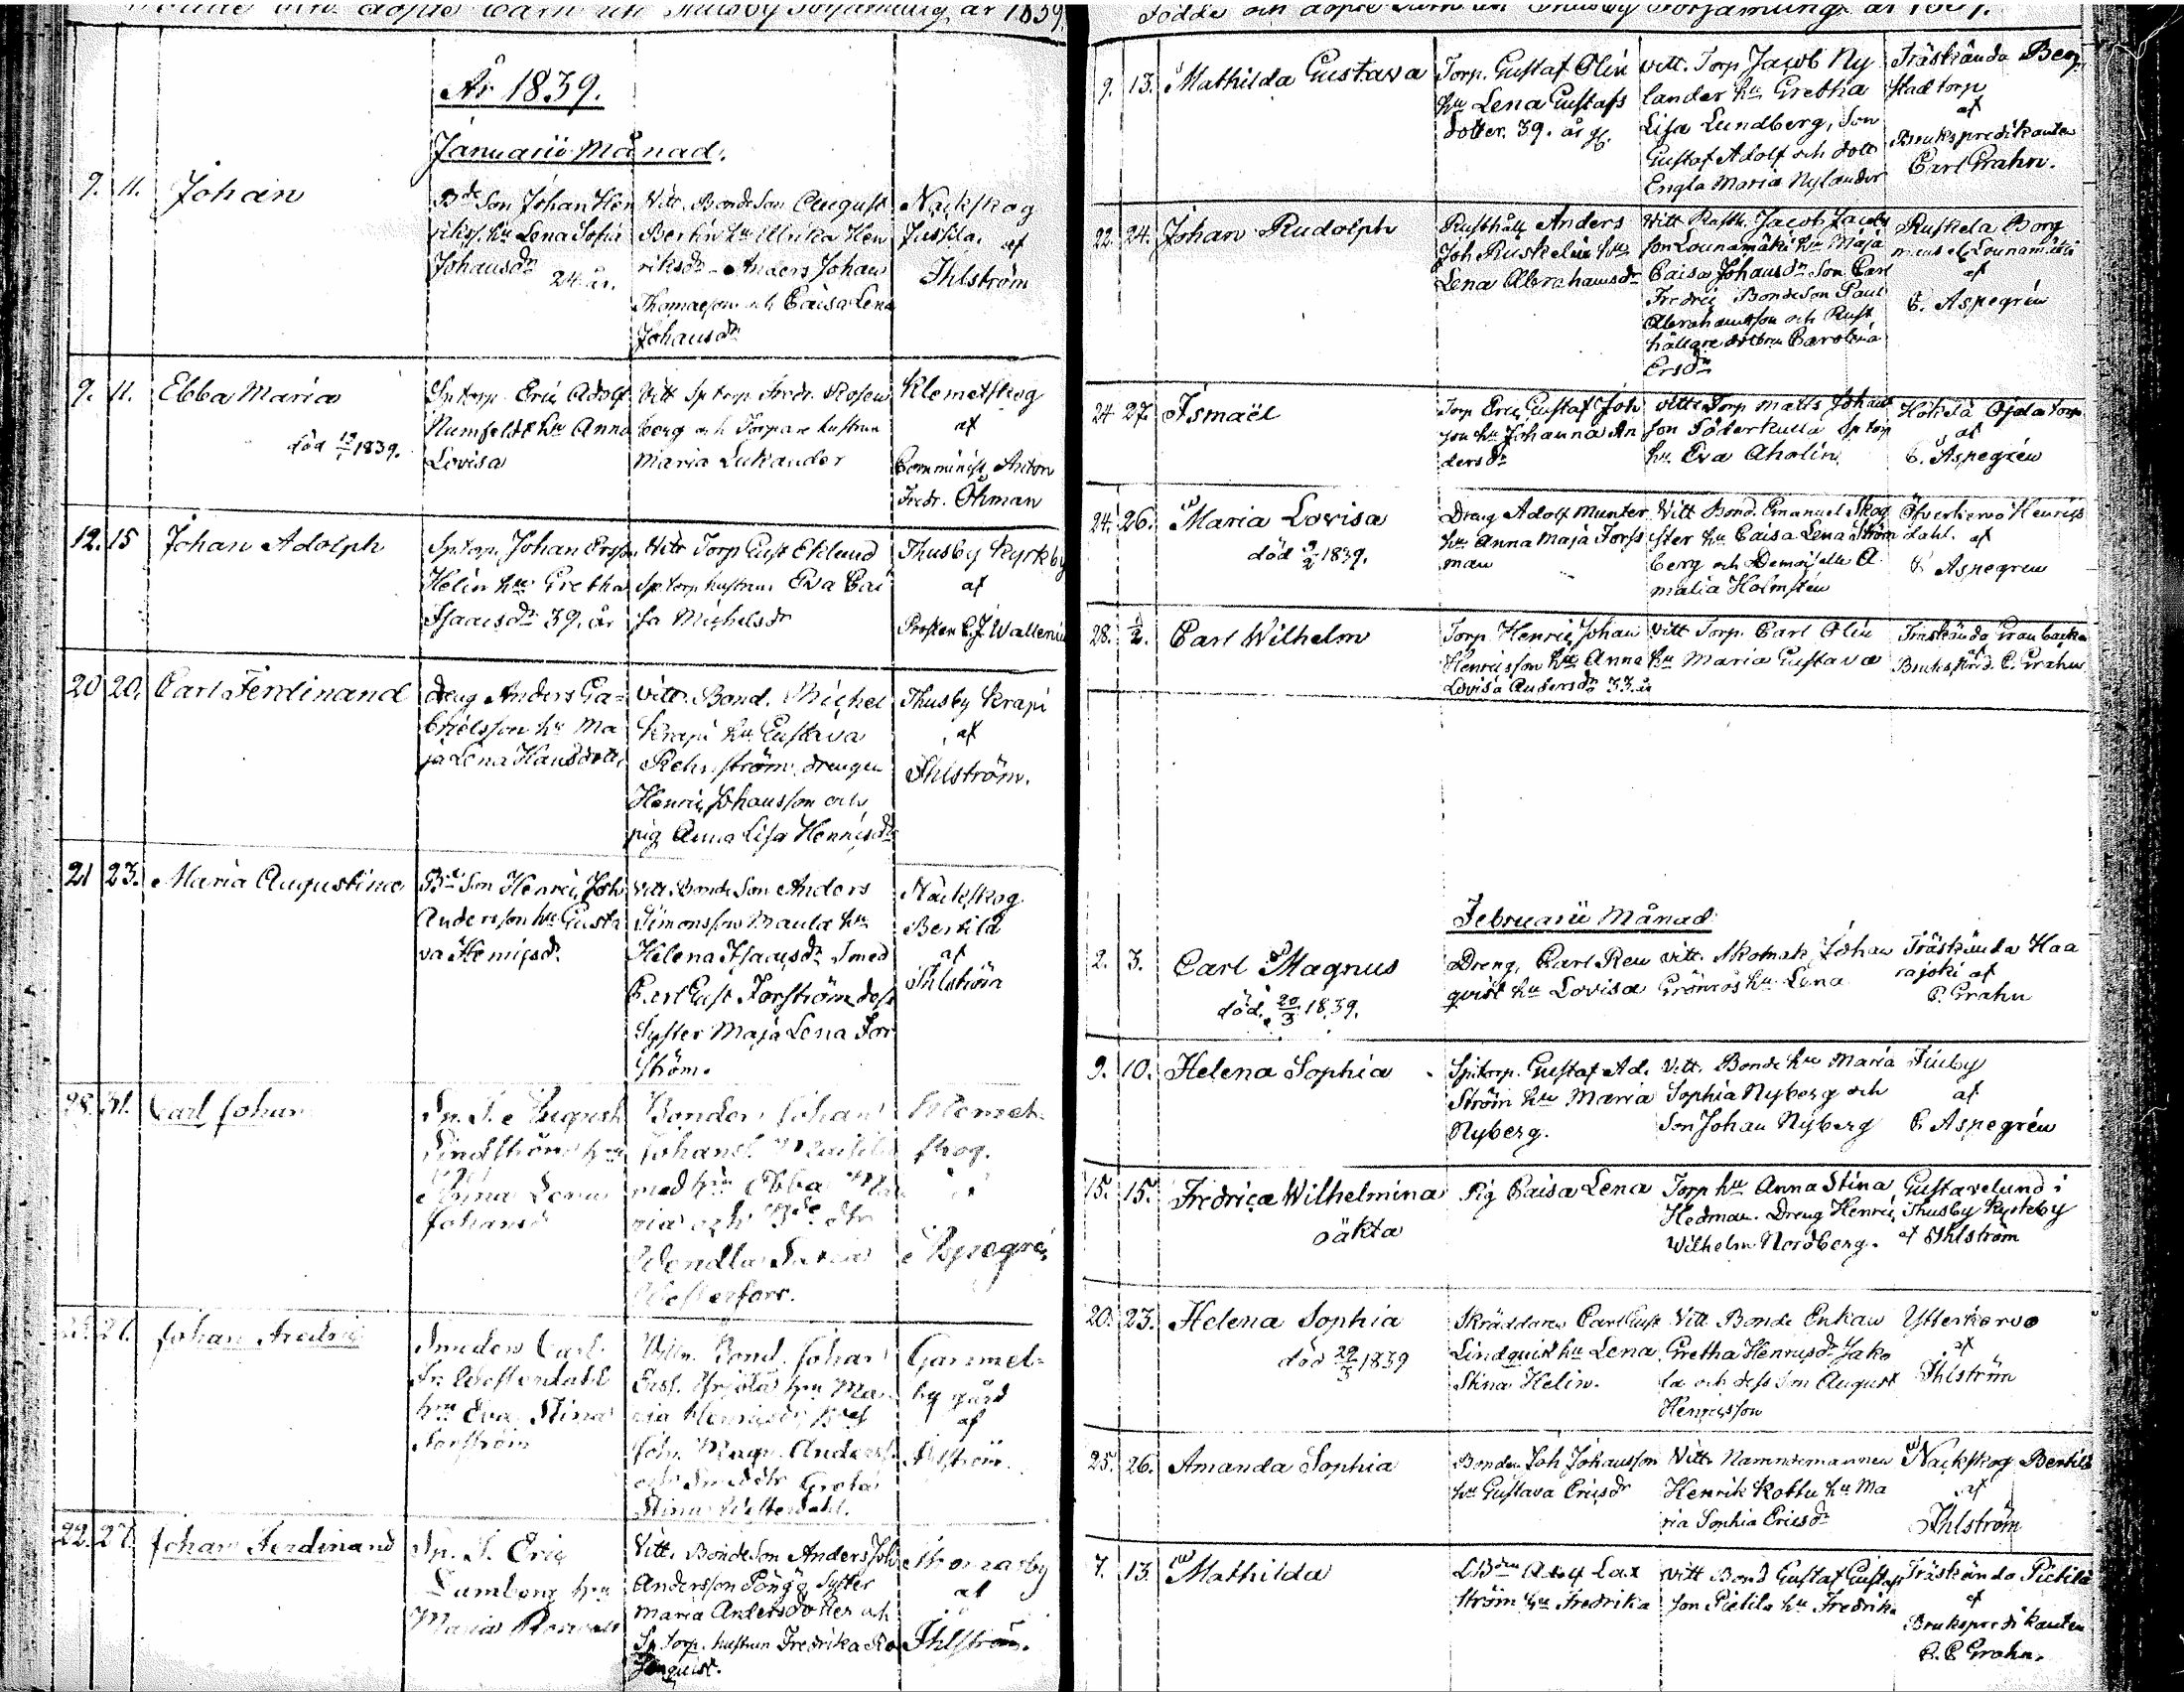 döpte barn uti Thusby Församling år 1839
År 1839.
Januarii Månad.
9. 11. Johan
Bde Son Johan Hen
rikss. hu Lena Sofia
Johansdr
24 år.
Vitt. Bonde Son August
Bertin hu Ulrika Hen
riksdr Anders Johan
Thomasson och Caisa Lena
Johansdr
Nackskog
Jussila af
Ihlström
9. 11. Ebba Maria
död 1839.
Sp torp. Eric Adolf
Rumfeldt hu Anna
Lovisa
Vitt Sptorp Fredr. Rosen
berg och Torpare hustrun
Maria Lukander
Klemetskog
af
Comminist. Anton
Fredr. Öhman
12. 15 Johan Adolph
Sptorp. Johan Ersson
Helin hu Gretha
Isaacsdr 39. år
Vitt Torp Gust Eklund
Sp torp hustrun Eva Cai
sa Michelsdr
Thusby Kyrkby
af
Prosten C.J. Wallenius
20 20. Carl Ferdinand
Dreng Anders Ga=
brielsson hu Ma
ja Lena Hansdotter
Vitt. Bond. Michel
Krapi hu Gustava
Rehnström, drengen
Henric Johansson och
pig Anna Lisa Henricsdr
Thusby Krapi
af
Ihlström.
21 23. Maria Augustina
Bde Son Henric Joh
Andersson hu Gusta
va Henricsdr
Vitt. Bonde Son Anders
Simonsson Maula hu
Helena Isaacsdr Smed
Carl Gust Forström dess
Syster Maja Lena For
ström.
Nackskog
Bertila
af
Ihlström
28. 31. Carl Johan
Sp. T. August
Lindström hu
Anna Lena
Johansd
Bonden Johan
Johans.
med hu Ebba Ma
ria och Bde dtr
Wendla Maria
Westerfors.
Klemet-
skog.
af
Aspegrén
27. Johan Fredric
Smeden Carl
Fr. Westerdahl
hu Eva Stina
Forström
Vittn. Bond. Johan
Gust. hu Ma
ria Henricsdr
Joh. Magn. Anderss.
och Sm dtr Greta
Stina Westerdahl.
Gammel=
by gård
af
Ihlström.
22. 27. Johan Ferdinand
Sp. T. Eric
Lumberg hu
Maria
Vitt. Bonde Son Anders Joh
Andersson Pöngö Syster
Maria Andersdotter och
Sp Torp. hustrun Fredrika Ro
senquist.
Thomasby
af
Ihlström.
Födde och döpte barn uti Thusby Församling år 1839.
9. 13. Mathilda Gustava
Torp. Gustaf Olin
hu Lena Gustafs
dotter. 39. år gl.
Vitt. Torp Jacob Ny
lander hu Gretha
Lisa Lundberg, Son
Gustaf Adolf och dott
Engla Maria Nylander
Träskända Berg
stad torp
af
Brukspredikanten
Carl Grahn.
22. 24. Johan Rudolph
Rusthåll Anders
Joh Ruskelin hu
Lena Abrahamsdr
Vitt Rusth. Jacob Jacobs
son Lounamäki hu Maja
Caisa Johansdr Son Carl
Fredric Bonde Son Paul
Abrahamsson och Rust
hållare dottern Carolina
Ersdr
Ruskela Borg
Lounamäki
af
C. Aspegrén
24 27. Ismaël
Torp Eric Gustaf Joh
son hu Johanna An
dersdr
Vitt. Torp Matts Johans
son Söderkulla Sp torp
hu. Eva Aholin.
Hotela Ojala torp
af
C. Aspegrén
24. 26. Maria Lovisa
död 9/2 1839.
Dreng Adolf Munter
hu Anna Maja Forss
man
Vitt Bond. Emanuel Skog
ster hu Caisa Lena Ström
berg och Demoiselle A
malia Holmsten
Öfverkervo Henriks
dahl. af
C. Aspegrén
28. 1/2. Carl Wilhelm
Torp Henric Johan
Henricsson hu Anna
Lovisa Andersdr 33. år
Vitt Torp. Carl Olin
hu Maria Gustava
Träskända Granbacka
af
Bruks Pred. C. Grahn
Februarii Månad
2. 3. Carl Magnus
död. 20/3 1839.
Dreng. Carl Ren
qvist hu Lovisa
Vitt. Skomak. Johan
Grönroos hu Lena
Träskända Haa
rajoki af
C. Grahn
9. 10. Helena Sophia
Sptorp. Gustaf Ad.
Ström hu Maria
Nyberg.
Vitt. Bonde hu Maria
Sophia Nyberg och
Son Johan Nyberg
Finby
af
C. Aspegrén
15. 15. Fredrica Wilhelmina
oäkta
Pig Caisa Lena
Torp hu Anna Stina
Hedman. Dreng Henric
Wilhelm Nordberg.
Gustavelund i
Thusby Kyrkby
af Ihlström
20. 23. Helena Sophia
död 29/3 1839
Skräddaren Carl Gust
Lindquist hu Lena
Stina Helin.
Vitt Bonde Enkan
Gretha Henricsdr Jako
la och dess Son August
Henricsson
Ytterkervo
af
Ihlström
25. 26. Amanda Sophia
Bonden Joh Johansson
hu Gustava Ericsdr
Vitt. Namndemannen
Henrik Kottu hu Ma
ria Sophia Ericsdr
Nackskog Bertila
af
Ihlström
7. 13. Mathilda
Adolf Lax
ström hu Fredrika
Vitt Bond Gustaf Gustafs
son Pietilä hu Fredrika
Träskända Pietilä
af
Brukspredikanten
C. C. Grahn.